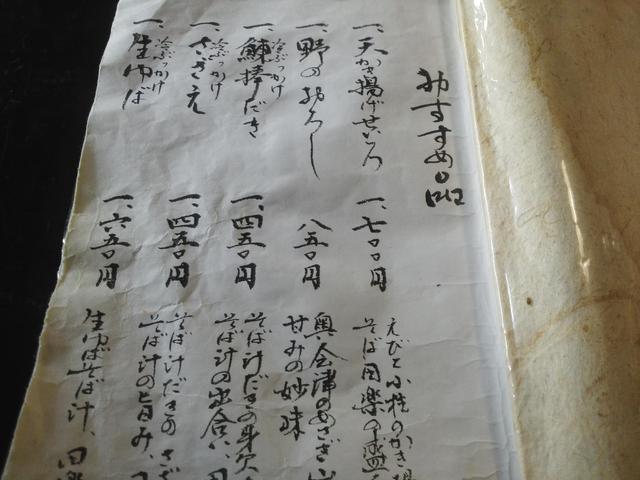 おすすめ品
一、天かき揚げせいろ
一、七〇〇円
えびと小柱のかき揚
そば田楽の盛
一、野のおろし
八五〇円
奥会津のあざき
甘みの妙味
一、冷ぶっかけ
鰊棒だき
一、四五〇円
そば汁だきの身欠
そば汁の出合い、田
一、冷ぶっかけ
さざえ
一、四五〇円
そば汁だきのさざ
そば汁の旨み、
一、冷ぶっかけ
生ゆば
一、六五〇円
生ゆばそば汁、田楽